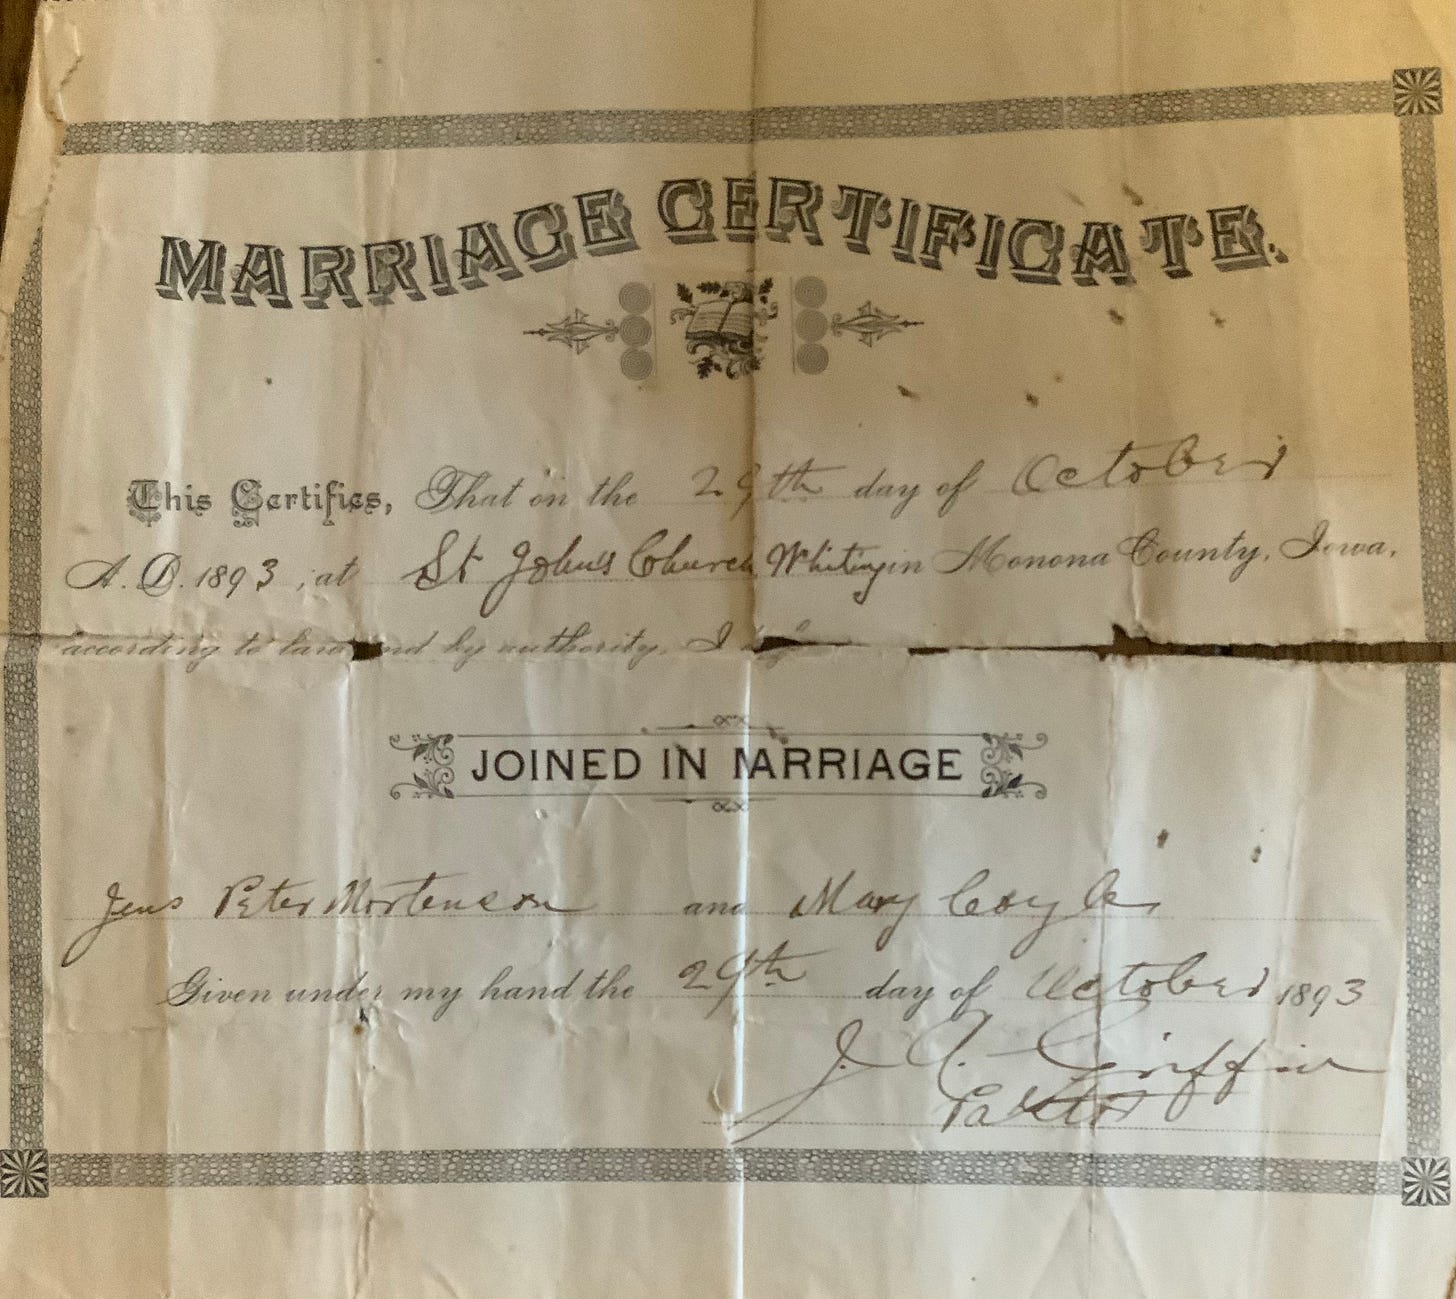 MARRIAGE CERTIFICATE.
This Certifies, That on the 29th day of October
A.D. 1893, at St John's Church Whiting in Monona County, Iowa,
according to law and by authority, I
JOINED IN MARRIAGE
Jens Peter Mortensen and Mary Coyle
Given under my hand the 29th day of October 1893
J. Griffin
Pastor